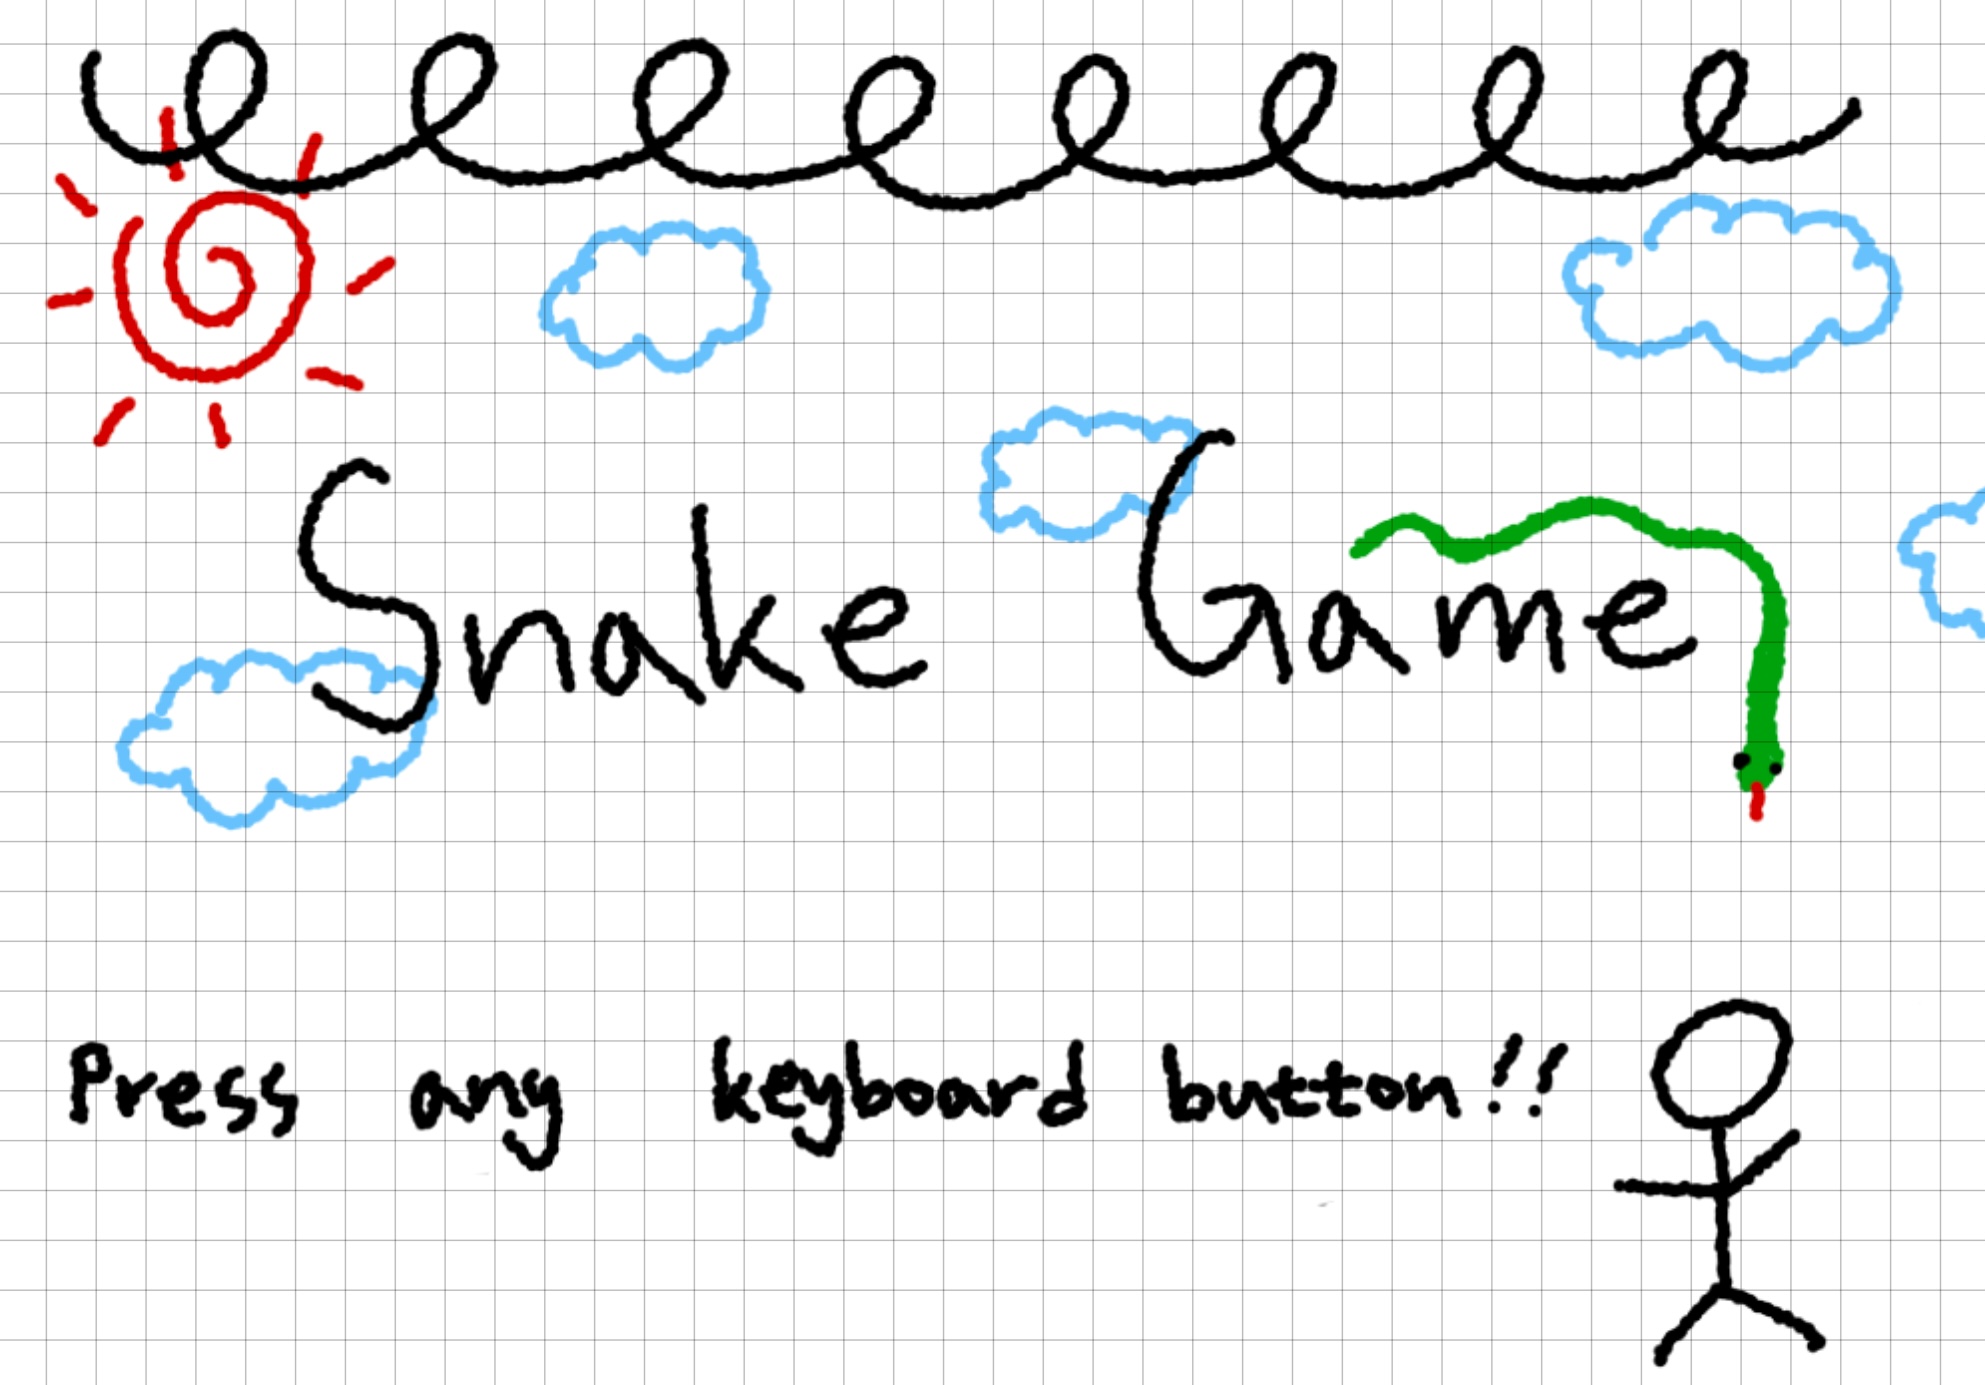 Snake Game
Press any keyboard button!!